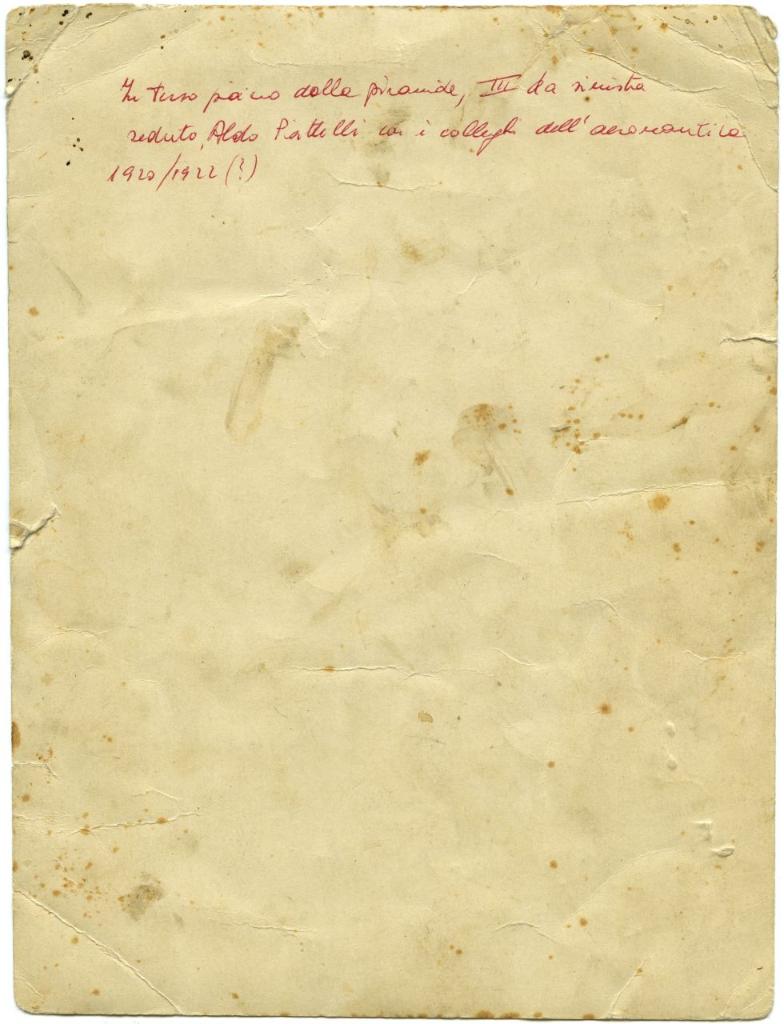 In terzo piano della piramide, III da sinistra
seduto, Aldo Piattelli con i colleghi dell'aeronautica
1920/1922 (?)